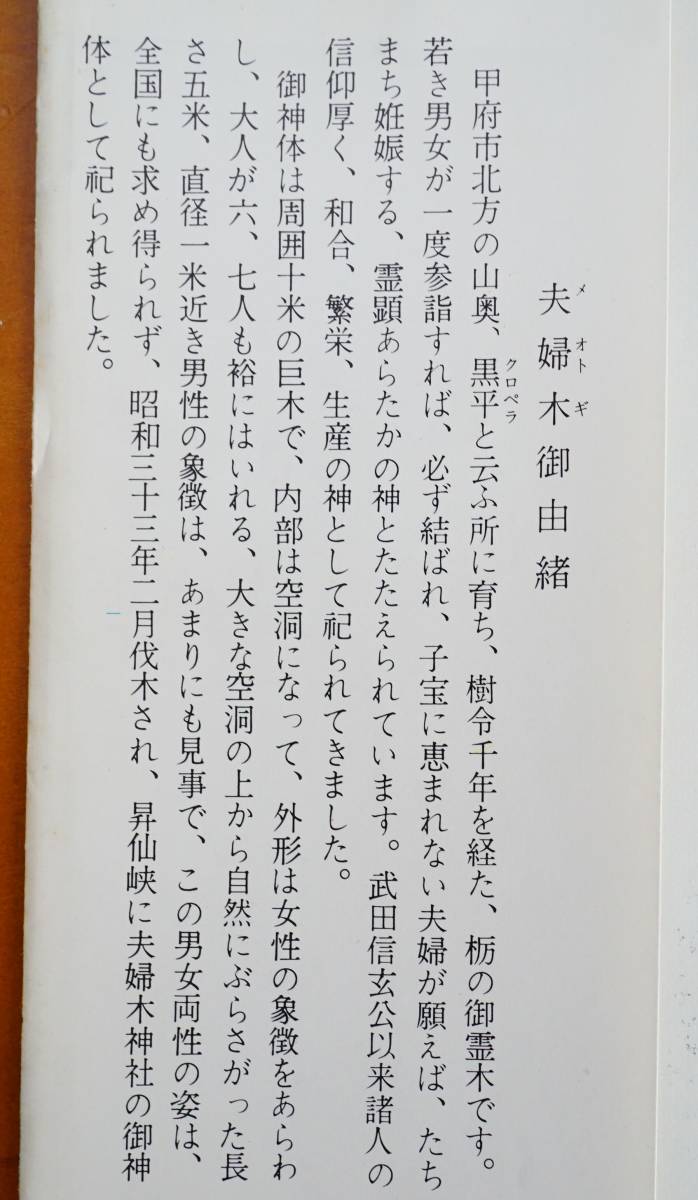 夫婦木御由緒
メオトギ
甲府市北方の山奥、黒平と云ふ所に育ち、樹令千年を経た、栃の御霊木です。
クロペラ
若き男女が一度参詣すれば、必ず結ばれ、子宝に恵まれない夫婦が願えば、たち
まち姙娠する、霊顕あらたかの神とたたえられています。武田信玄公以来諸人の
信仰厚く、和合、繁栄、生産の神として祀られてきました。
御神体は周囲十米の巨木で、内部は空洞になって、外形は女性の象徴をあらわ
し、大人が六、七人も裕にはいれる、大きな空洞の上から自然にぶらさがった長
さ五米、直径一米近き男性の象徴は、あまりにも見事で、この男女両性の姿は、
全国にも求め得られず、昭和三十三年二月伐木され、昇仙峡に夫婦木神社の御神
体として祀られました。